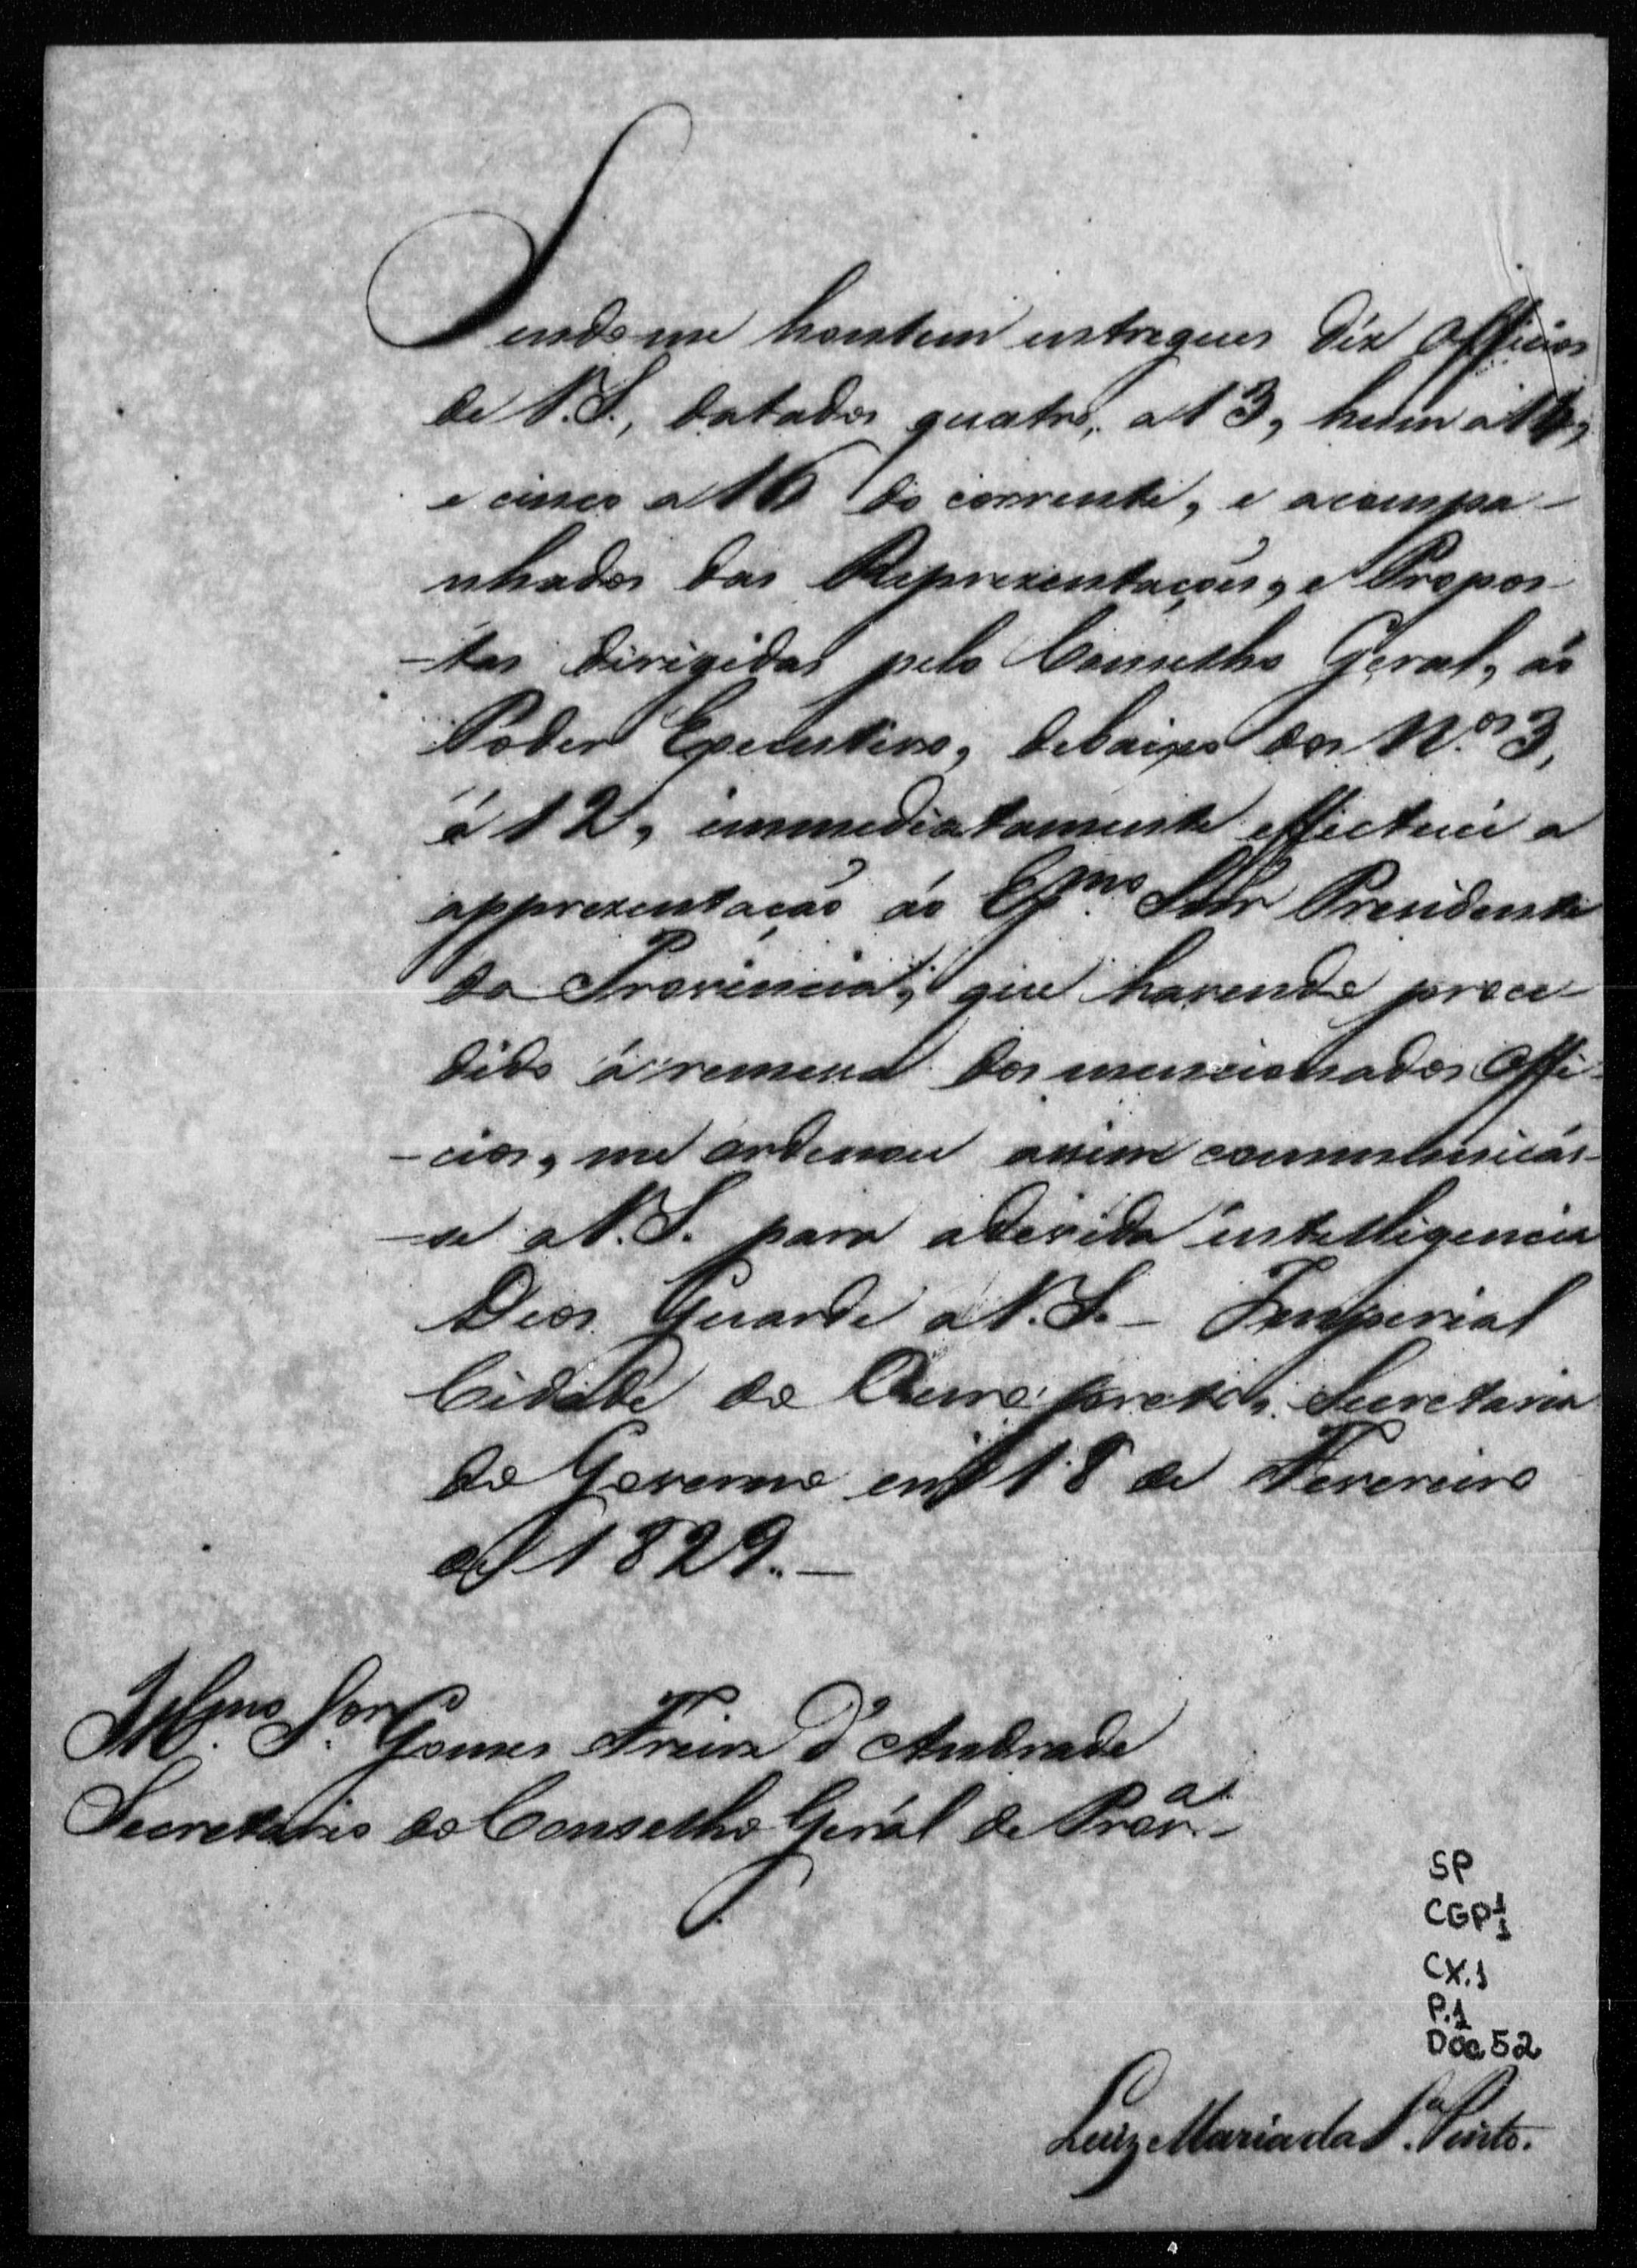 Sendo-me hontem entregues déz Officios
de V.S., datados quatro, a 13, hum a 14,
e cinco a 16 do corrente, e acompa-
nhados das Reprezentações, e Propos-
-tas dirigidas pelo Conselho Geral, áo
Poder Executivo, debaixo dos N.os 3,
á 12, immediatamente effectuei a
apprezentação áo Ex.mo Snr Presidente
da Provincia; que havendo proce-
dido á remessa dos mencionados Offi-
-cios, me ordenou assim communicás-
-se a V.S. para a devida intelligencia
Deos Guarde a V.S. - Imperial
Cidade do Ouro preto, Secretaria
do Governo em 18 de Fevereiro
de 1829. —
Ill.mo S.or Gomes Freire d'Andrade
Secretario do Conselho Gerál de Prov.a
SP
CGP 1
1
CX.1
P.1
Doc 52
Luiz Maria da S.a Pinto.